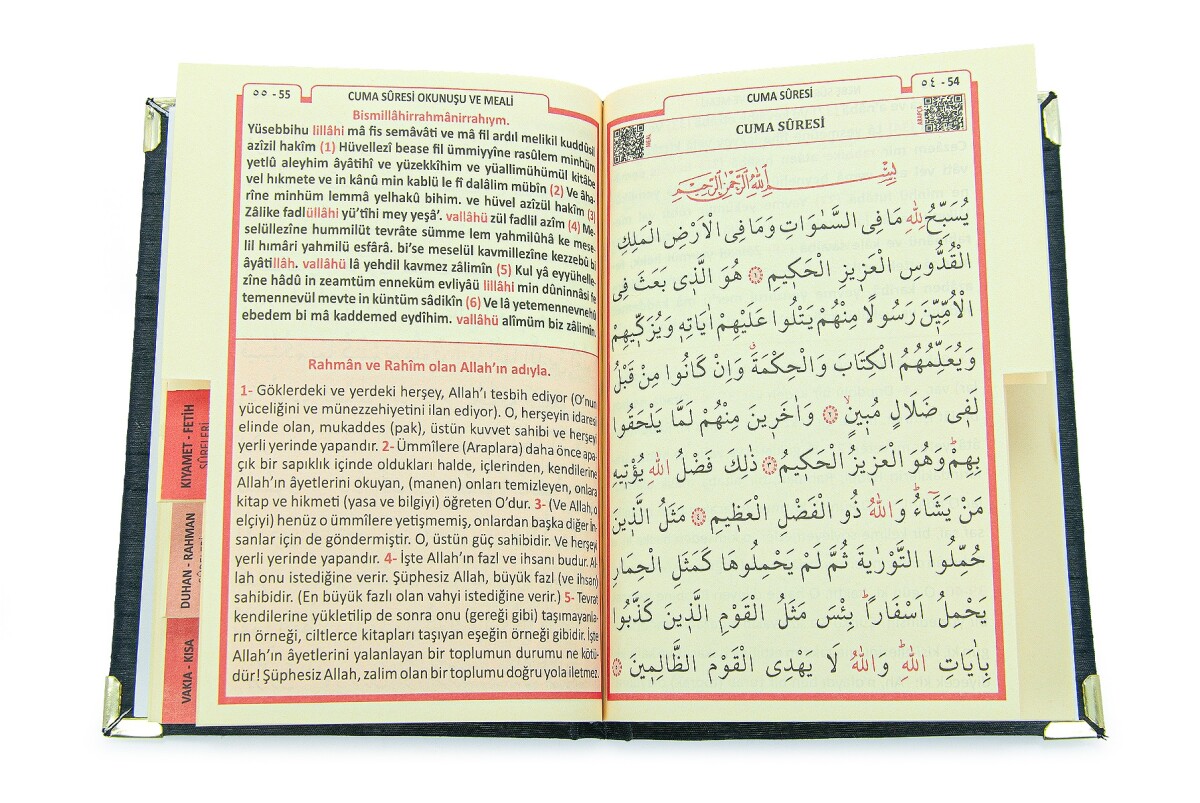 ٥٥ - 55
CUMA SÛRESİ OKUNUŞU VE MEALİ
Bismillâhirrahmânirrahıym.
Yüsebbihu lillâhi mâ fis semâvâti ve mâ fil ardıl melikil kuddûsil
azîzil hakîm (1) Hüvellezî bease fil ümmiyyîne rasûlem minhüm
yetlû aleyhim âyâtihî ve yüzekkîhim ve yüallimühümül kitâbe
vel hıkmete ve in kânû min kablü le fî dalâlim mübîn (2) Ve âha-
rîne minhüm lemmâ yelhakû bihim. ve hüvel azîzül hakîm (3)
Zâlike fadlüllâhi yü'tîhi mey yeşâ'. vallâhü zül fadlil azîm (4) Me-
selüllezîne hummilüt tevrâte sümme lem yahmilûhâ ke mese-
lil hımâri yahmilü esfârâ. bi'se meselül kavmillezîne kezzebû bi
âyâtillâh. vallâhü lâ yehdil kavmez zâlimîn (5) Kul yâ eyyühelle-
zîne hâdû in zeamtüm enneküm evliyâü lillâhi min dûninnâsi fe
temennevül mevte in küntüm sâdikîn (6) Ve lâ yetemennevnehû
ebedem bi mâ kaddemed eydîhim. vallâhü alîmüm biz zâlimîn.
Rahmân ve Rahîm olan Allah'ın adıyla.
1- Göklerdeki ve yerdeki herşey, Allah'ı tesbih ediyor (O'nun
yüceliğini ve münezzehiyetini ilan ediyor). O, herşeyin idaresi
elinde olan, mukaddes (pak), üstün kuvvet sahibi ve herşeyi
yerli yerinde yapandır. 2- Ümmîlere (Araplara) daha önce apa-
çık bir sapıklık içinde oldukları halde, içlerinden, kendilerine
Allah'ın âyetlerini okuyan, (manen) onları temizleyen, onlara
kitap ve hikmeti (yasa ve bilgiyi) öğreten O'dur. 3- (Ve Allah, o
elçiyi) henüz o ümmîlere yetişmemiş, onlardan başka diğer in-
sanlar için de göndermiştir. O, üstün güç sahibidir. Ve herşeyi
yerli yerinde yapandır. 4- İşte Allah'ın fazl ve ihsanı budur. Al-
lah onu istediğine verir. Şüphesiz Allah, büyük fazl (ve ihsan)
sahibidir. (En büyük fazlı olan vahyi istediğine verir.) 5- Tevrat
kendilerine yükletilip de sonra onu (gereği gibi) taşımayanla-
rın örneği, ciltlerce kitapları taşıyan eşeğin örneği gibidir. İşte
Allah'ın âyetlerini yalanlayan bir toplumun durumu ne kötü-
dür! Şüphesiz Allah, zalim olan bir toplumu doğru yola iletmez.
KIYAMET - FETİH
SÛRELERİ
DUHAN - RAHMAN
VAKIA - KISA
CUMA SÛRESİ
٥٤ - 54
MEAL
CUMA SÛRESİ
ARAPÇA
بِسْمِ اللهِ الرَّحْمٰنِ الرَّحِيمِ
يُسَبِّحُ لِلّٰهِ مَا فِى السَّمٰوَاتِ وَمَا فِى الْاَرْضِ الْمَلِكِ
الْقُدُّوسِ الْعَزِيزِ الْحَكِيمِ ﴿١﴾ هُوَ الَّذِى بَعَثَ فِى
الْاُمِّيّنَ رَسُولًا مِنْهُمْ يَتْلُوا عَلَيْهِمْ اٰيَاتِهِ وَيُزَكِّيهِمْ
وَيُعَلِّمُهُمُ الْكِتَابَ وَالْحِكْمَةَ وَاِنْ كَانُوا مِنْ قَبْلُ
لَفِى ضَلَالٍ مُبِينٍ ﴿٢﴾ وَاٰخَرِينَ مِنْهُمْ لَمَّا يَلْحَقُوا
بِهِمْ وَهُوَ الْعَزِيزُ الْحَكِيمُ ﴿٣﴾ ذٰلِكَ فَضْلُ اللهِ يُؤْتِيهِ
مَنْ يَشَاءُ وَاللهُ ذُو الْفَضْلِ الْعَظِيمِ ﴿٤﴾ مَثَلُ الَّذِينَ
حُمِّلُوا التَّوْرٰيةَ ثُمَّ لَمْ يَحْمِلُوهَا كَمَثَلِ الْحِمَارِ
يَحْمِلُ اَسْفَاراً بِئْسَ مَثَلُ الْقَوْمِ الَّذِينَ كَذَّبُوا
بِاٰيَاتِ اللهِ وَاللهُ لَا يَهْدِى الْقَوْمَ الظَّالِمِينَ ﴿٥﴾